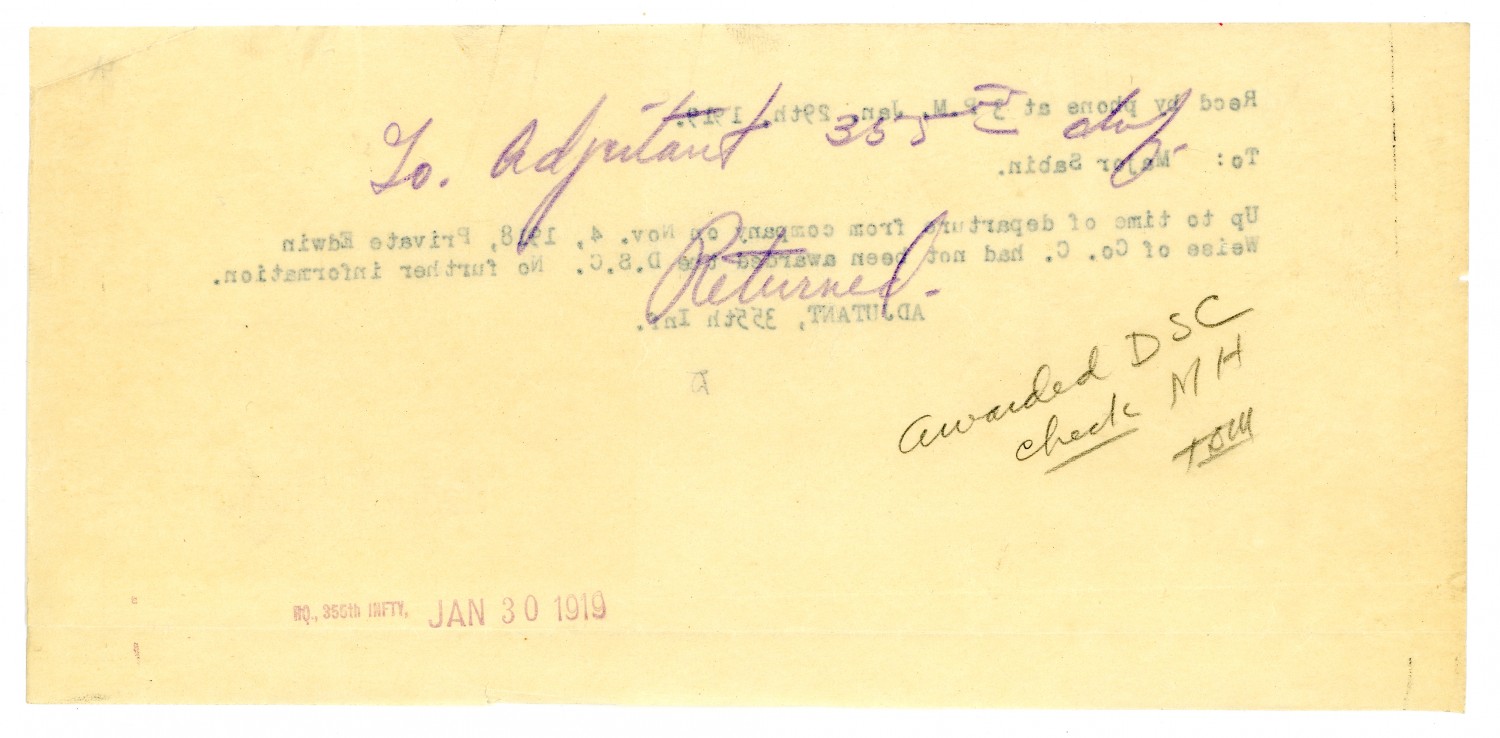 Recd by phone at 3 P.M. Jan. 29th, 1919.
To. Adjutant 355 Inf.
To: Major Sabin.
Up to time of departure from company on Nov. 4, 1918, Private Edwin
Returned.
Weise of Co. C. had not been awarded the D.S.C. No further information.
ADJUTANT, 355th Inf.
awarded DSC
check MH
HQ., 355th INFTY. JAN 30 1919